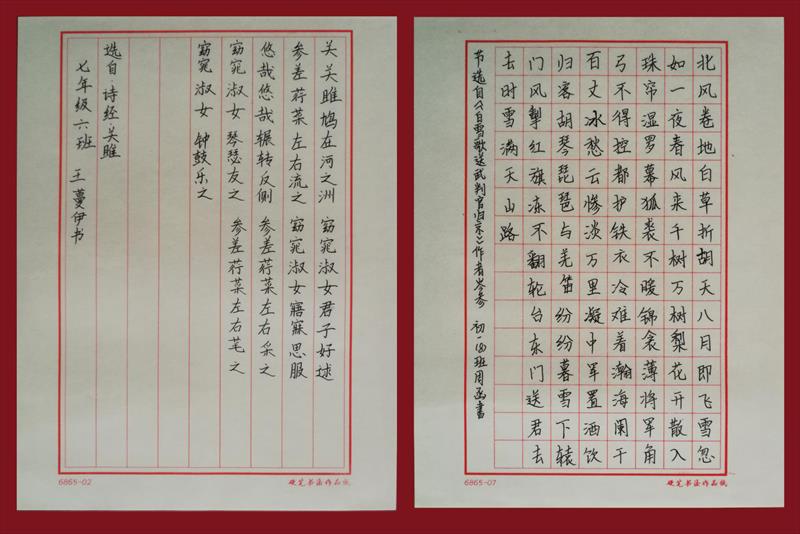 关关雎鸠在河之洲 窈窕淑女君子好逑
参差荇菜左右流之 窈窕淑女寤寐思服
悠哉悠哉辗转反侧 参差荇菜左右采之
窈窕淑女 琴瑟友之 参差荇菜左右芼之
窈窕淑女 钟鼓乐之
选自·诗经·关雎
七年级六班 王蔓伊书
6865-02
硬笔书法作品纸
北风卷地白草折胡天八月即飞雪忽
如一夜春风来千树万树梨花开散入
珠帘湿罗幕狐裘不暖锦衾薄将军角
弓不得控都护铁衣冷难着瀚海阑干
百丈冰愁云惨淡万里凝中军置酒饮
归客胡琴琵琶与羌笛纷纷暮雪下辕
门风掣红旗冻不翻轮台东门送君去
去时雪满天山路
节选自《白雪歌送武判官归京》作者岑参 初一(8)班周函書
6865-07
硬笔书法作品纸